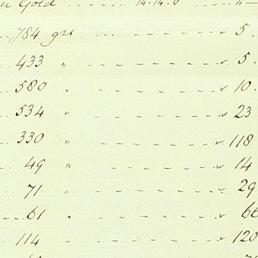 Gold ........ 14.14.0 "
784 grs .. ... - - - - - 5.
433 " - - - - - - - 5.
580 " - - - - - - - 10.
534 " - - - - - - - 23
330 " - - - - - - - 118
49 " - - - - - - - 14
71 " - - - - - - - 29
61 " - - - - - - - 66
114 " - - - - - - - 120